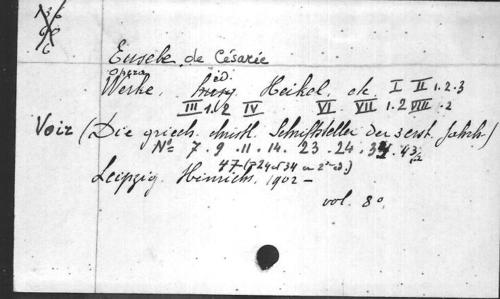 36
C
Eusèbe de Césarée
Opera éd.
Werke, hrsg. Heikel, etc I II 1.2.3
III 1.2 IV VI VII 1.2 VIII .2
Voir (Die griech. christl. Schriftsteller der 3 erst. Jahrh.)
Nos 7 . 9 . 11 . 14 . 23 . 24 . 34 . 43/2
47 (
Leipzig. Hinrichs, 1902 –
vol. 8o.